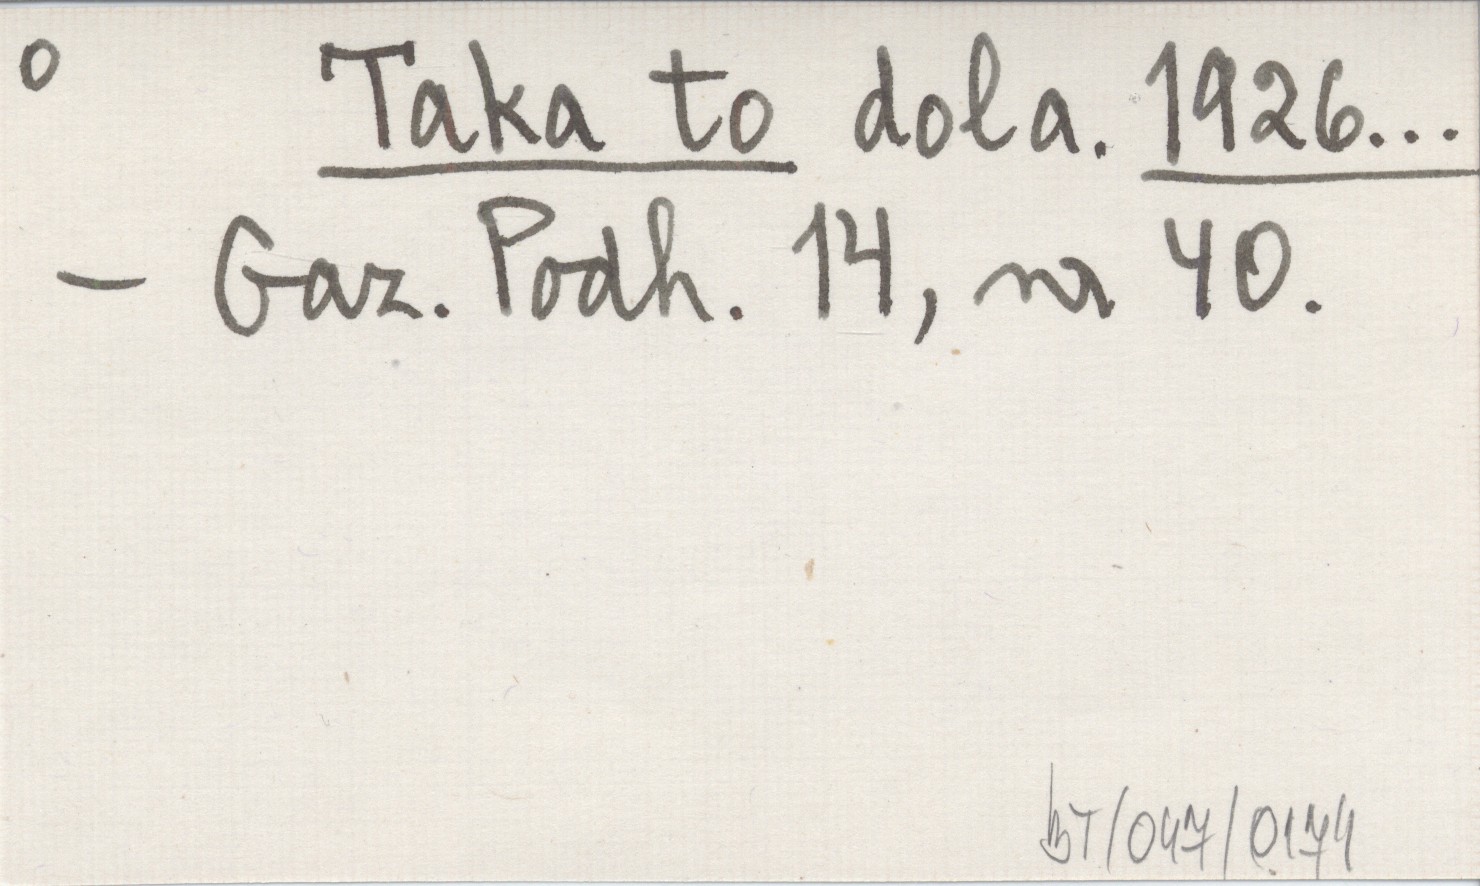 o Taka to dola. 1926...
– Gaz. Podh. 14, nr 40.
BT/047/0174